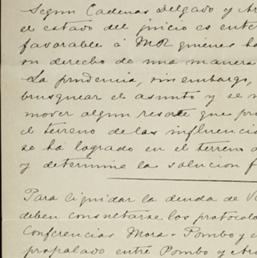 Segun Cadenas Delgado y Ar
el estado del juicio es ente
favorable á Mor quienes ha
su derecho de una manera
La prudencia, sin embargo,
brusquear el asunto y el n
mover algun resorte que pu
el terreno de las influencia
se ha logrado en el terreno d
y determine la solucion f
Para liquidar la deuda de V
deben consultarse los protocolo
Conferencias Mora-Pombo y c
propalado entre Pombo y Atr